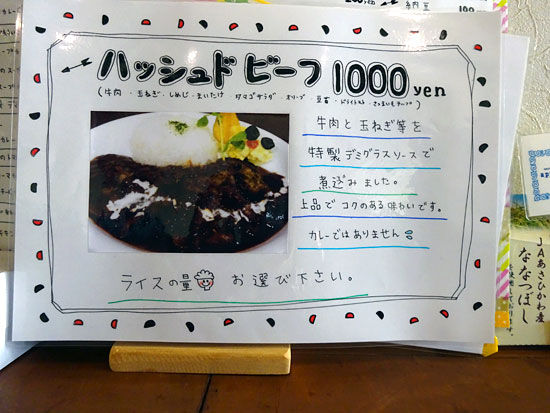 ハッシュド ビーフ 1000yen
(牛肉・玉ねぎ・しめじ・まいたけ タマゴサラダ・オリーブ・豆苗・ドライトマト・さつまいもチップ)
牛肉と玉ねぎ等を
特製デミグラスソースで
煮込みました。
上品でコクのある味わいです。
カレーではありません
ライスの量 お選び下さい。
納豆
100
JAあさひかわ産
ななつぼし